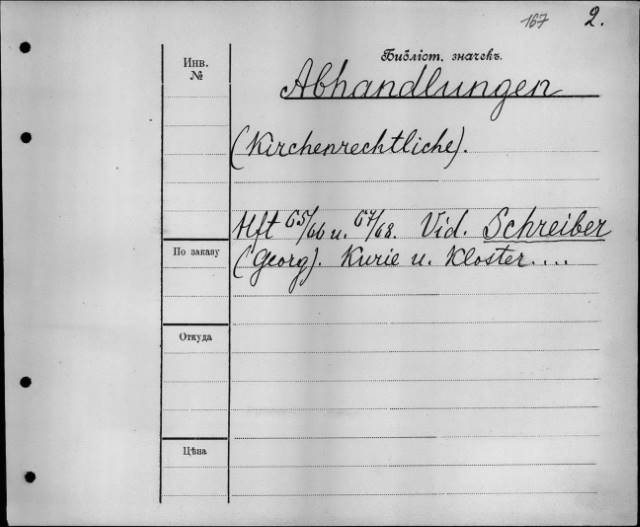 167 2.
Инв.
№
Библіот. значекъ.
Abhandlungen
(Kirchenrechtliche).
Hft 65/66 u. 67/68. Vid. Schreiber
По заказу
(Georg). Kurie u. Kloster....
Откуда
Цѣна